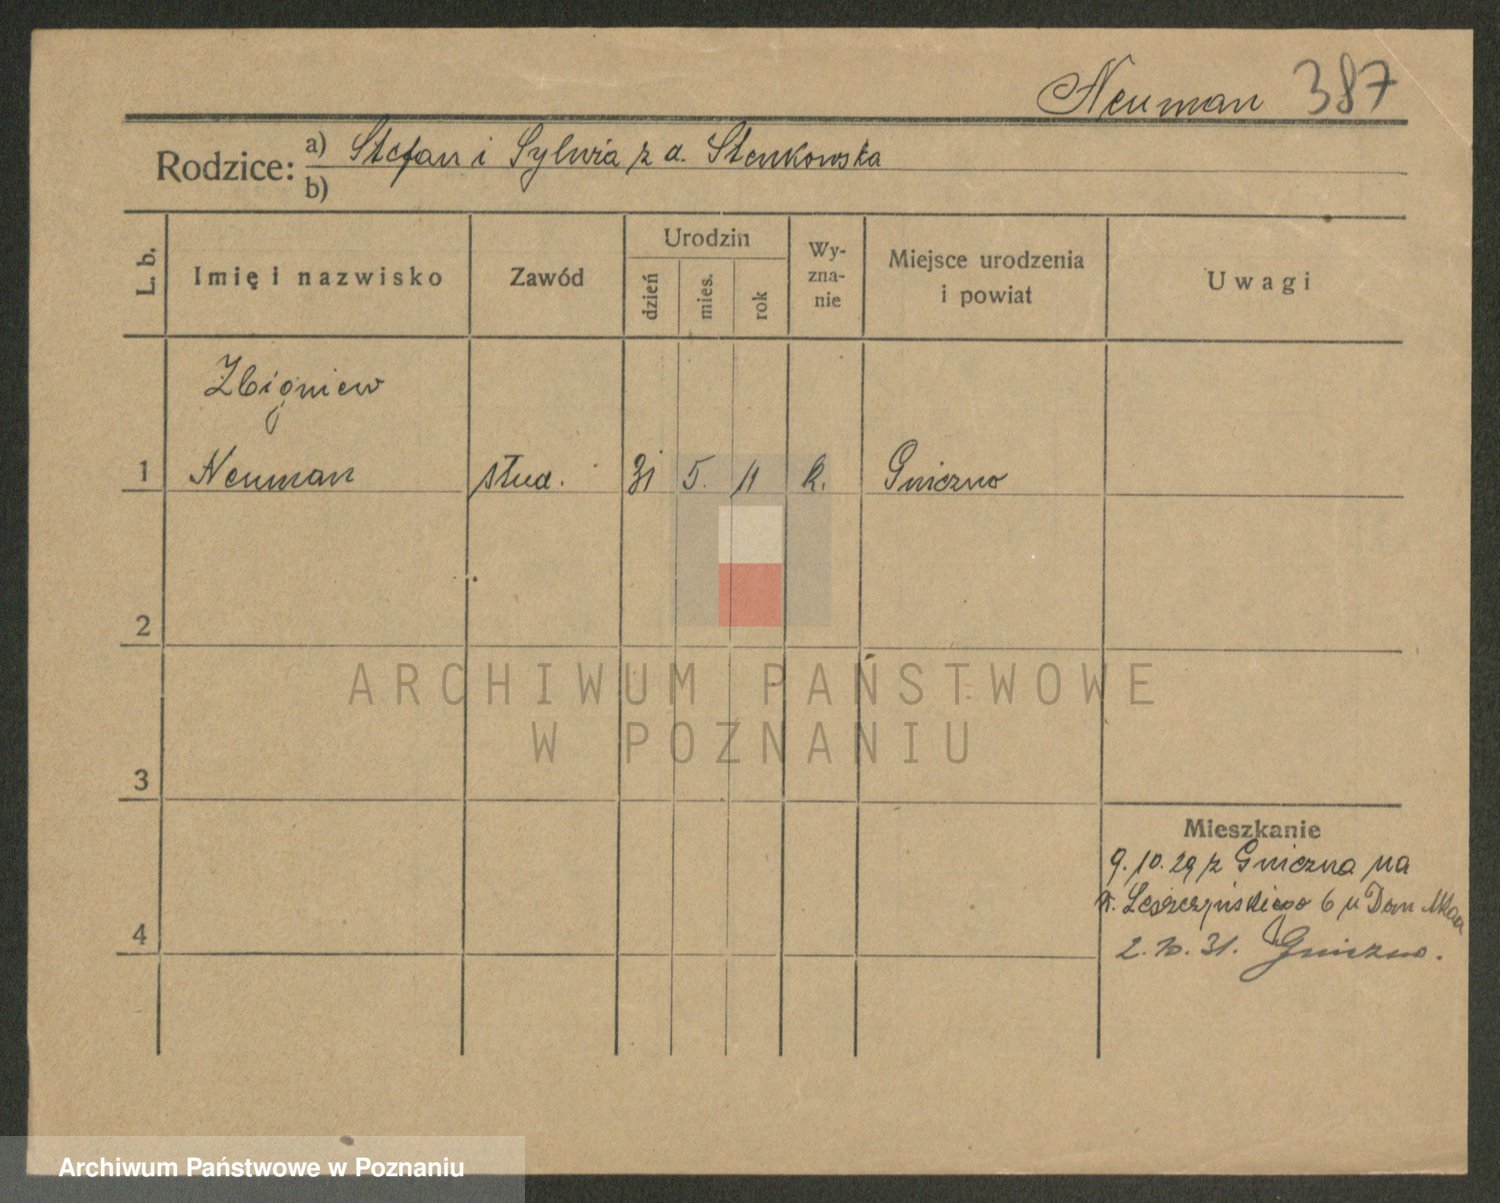 Neuman 387
Rodzice: a) Stefan i Sylwia z d. Stenkowska
b)
L. b.
Imię i nazwisko
Zawód
Urodzin
dzień
mies.
rok
Wy-
zna-
nie
Miejsce urodzenia
i powiat
Uwagi
Zbigniew
1 Neuman stud. 31 5. 11 k. Gniezno
2
ARCHIWUM PAŃSTWOWE
W POZNANIU
3
Mieszkanie
9.10.29 z Gniezna na
Leszczyńskiego 6 u Dom
4
2.10.31. Gniezno.
Archiwum Państwowe w Poznaniu